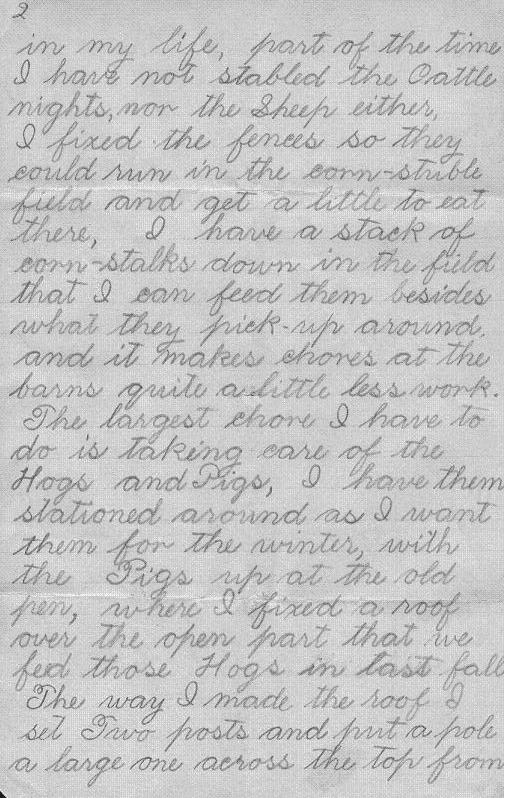 2
in my life, part of the time
I have not stabled the Cattle
nights, nor the Sheep either,
I fixed the fences so they
could run in the corn-stuble
field and get a little to eat
there, I have a stack of
corn-stalks down in the field
that I can feed them besides
what they pick-up around.
and it makes chores at the
barns quite a little less work.
The largest chore I have to
do is taking care of the
Hogs and Pigs, I have them
stationed around as I want
them for the winter, with
the Pigs up at the old
pen, where I fixed a roof
over the open part that we
fed those Hogs in last fall
The way I made the roof I
set Two posts and put a pole
a large one across the top from